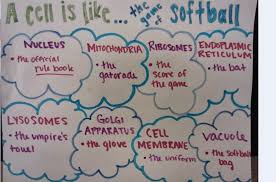 A cell is like... the game of softball
NUCLEUS
• the official
rule book
MITOCHONDRIA
• the
gatorade
RIBOSOMES
• the
score of the
game
ENDOPLASMIC
RETICULUM
• the bat
LYSOSOMES
• the umpire's
towel
GOLGI
APPARATUS
• the glove
CELL
MEMBRANE
• the uniform
VACUOLE
• the softball
bag